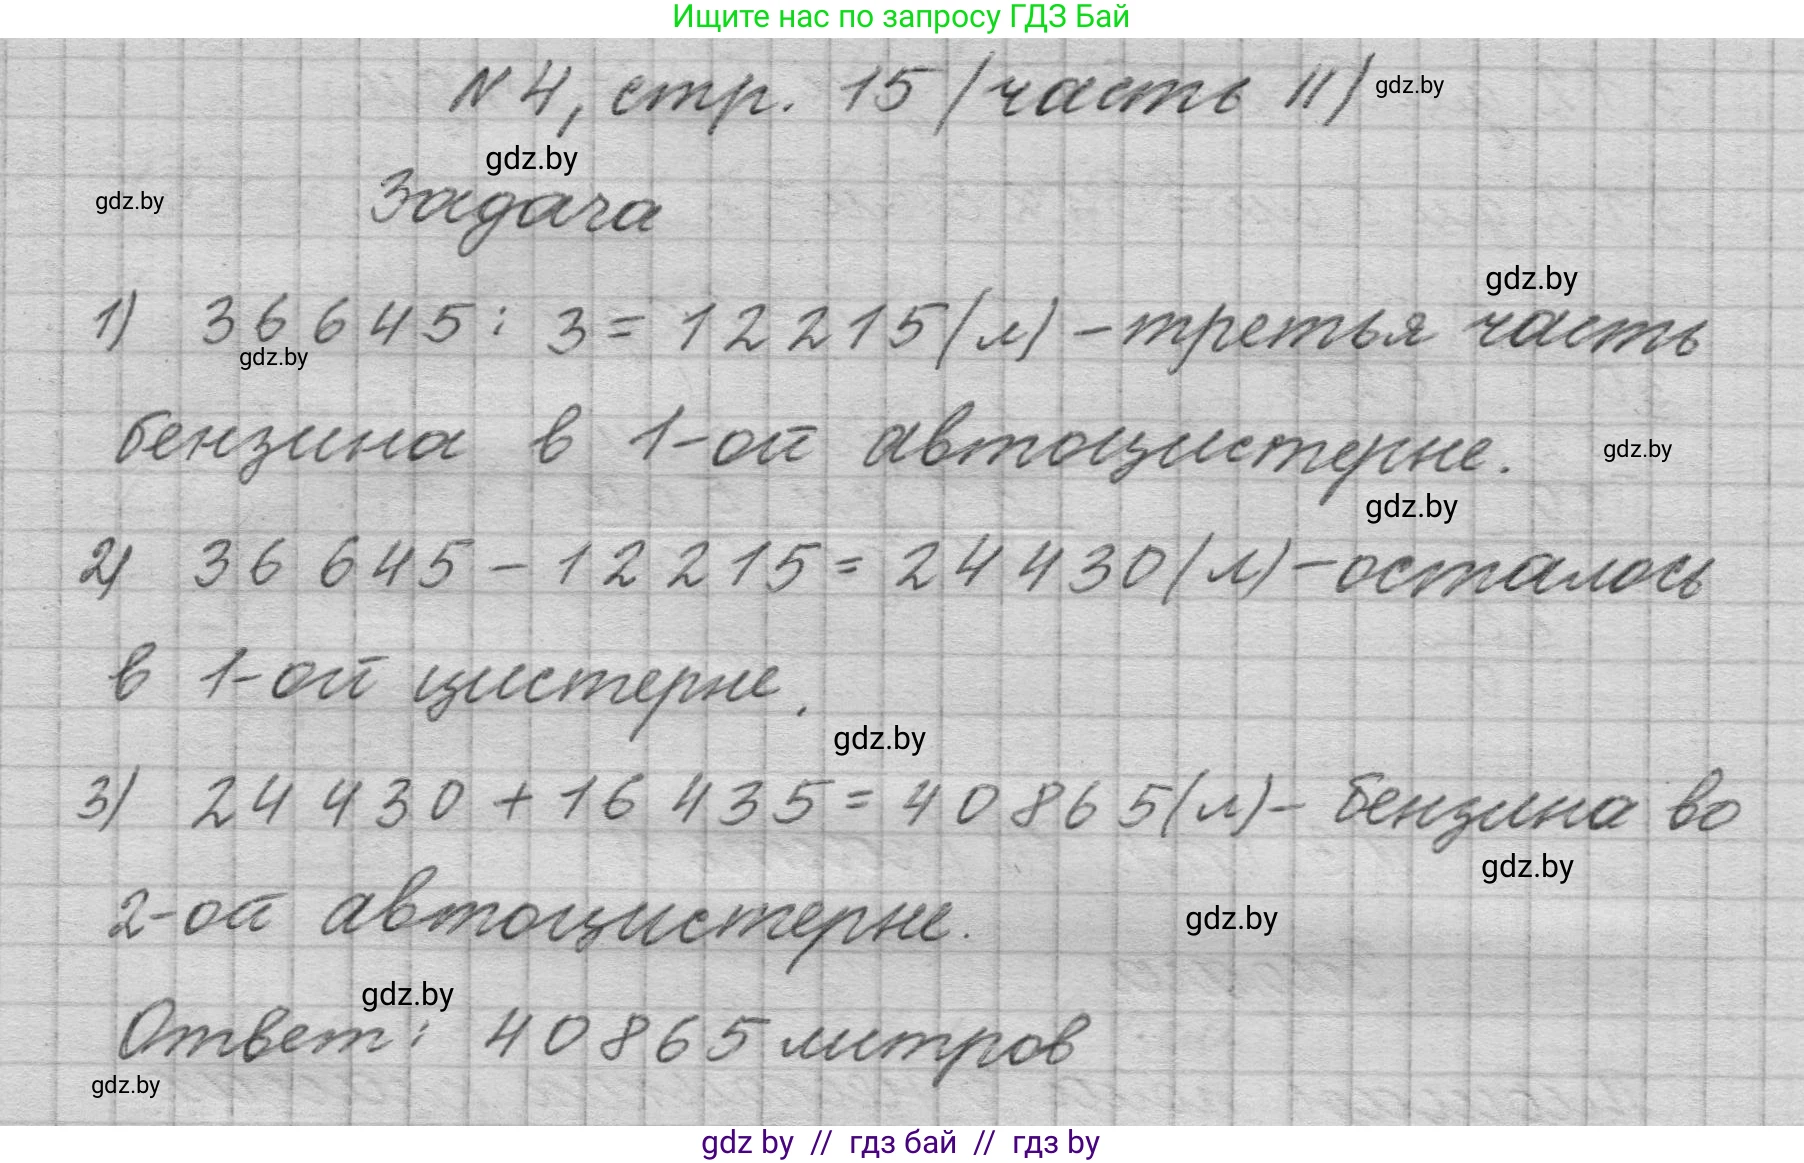 Ищите нас по запросу ГДЗ Бай
N 4, стр. 15 (часть II)
gdz.by
gdz.by
gdz.by
Задача
gdz.by
1) 36645 : 3 = 12215 (л) - третья часть
gdz.by
бензина в 1-ой автоцистерне.
gdz.by
gdz.by
2) 36645 - 12215 = 24430 (л) - осталось
в 1-ой цистерне.
gdz.by
3) 24430 + 16435 = 40865 (л) - бензина во
gdz.by
2-ой автоцистерне.
gdz.by
gdz.by
Ответ: 40865 литров
gdz.by
gdz by // гдз бай // гдз by